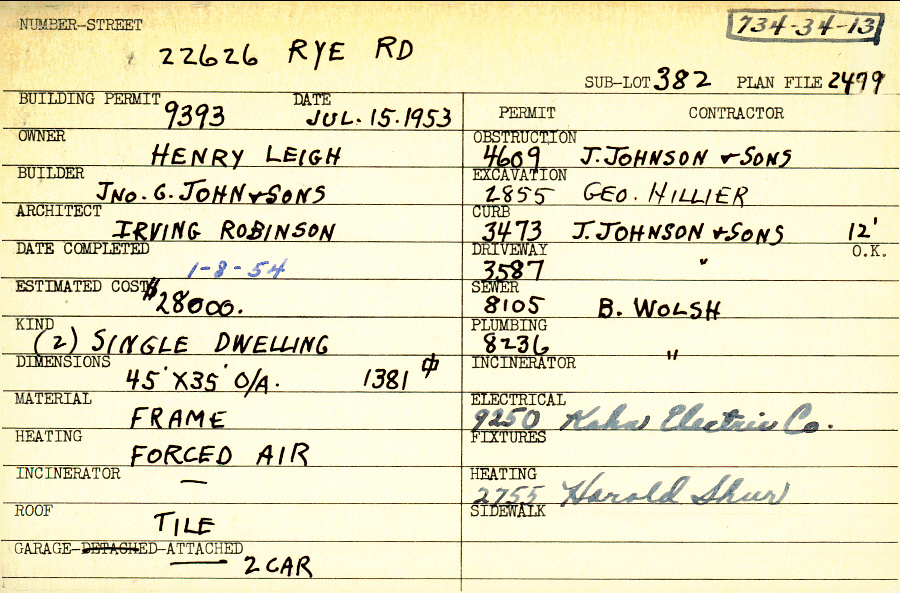 NUMBER-STREET
734-34-13
22626 RYE RD
SUB-LOT 382 PLAN FILE 2479
BUILDING PERMIT 9393 DATE JUL. 15. 1953
PERMIT CONTRACTOR
OWNER HENRY LEIGH
OBSTRUCTION 4609 J. JOHNSON & SONS
BUILDER JNO. G. JOHN & SONS
EXCAVATION 2855 GEO. HILLIER
ARCHITECT IRVING ROBINSON
CURB 3473 J. JOHNSON & SONS 12'
DATE COMPLETED 1-8-54
DRIVEWAY 3587 " O.K.
ESTIMATED COST $28000.
SEWER 8105 B. WOLSH
KIND (2) SINGLE DWELLING
PLUMBING 8236 "
DIMENSIONS 45' X 35' O/A. 1381
INCINERATOR
MATERIAL FRAME
ELECTRICAL 9250 Kahn Electric Co.
HEATING FORCED AIR
FIXTURES
INCINERATOR —
HEATING 2755 Harold Shur
ROOF TILE
SIDEWALK
GARAGE-DETACHED-ATTACHED 2 CAR